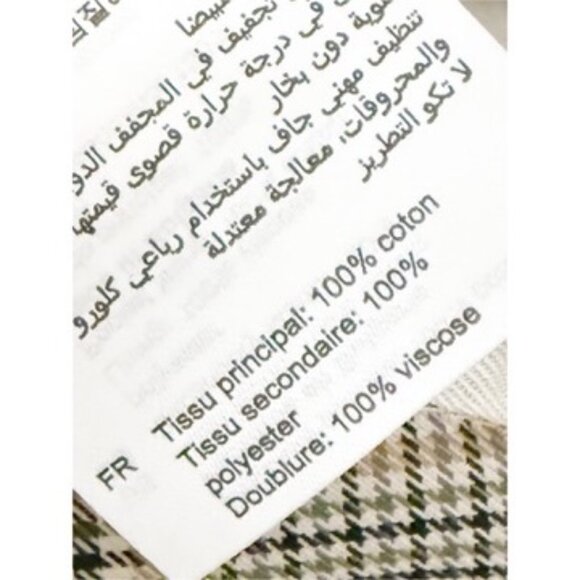 تبييضا
تجفيف في المجفف الدو
في درجة حرارة قصوى قيمتها
دون بخار
تنظيف مهني جاف باستخدام رباعي كلورو
والمحروقات، معالجة معتدلة
لا تكو التطريز
FR Tissu principal: 100% coton
Tissu secondaire: 100%
polyester
Doublure: 100% viscose